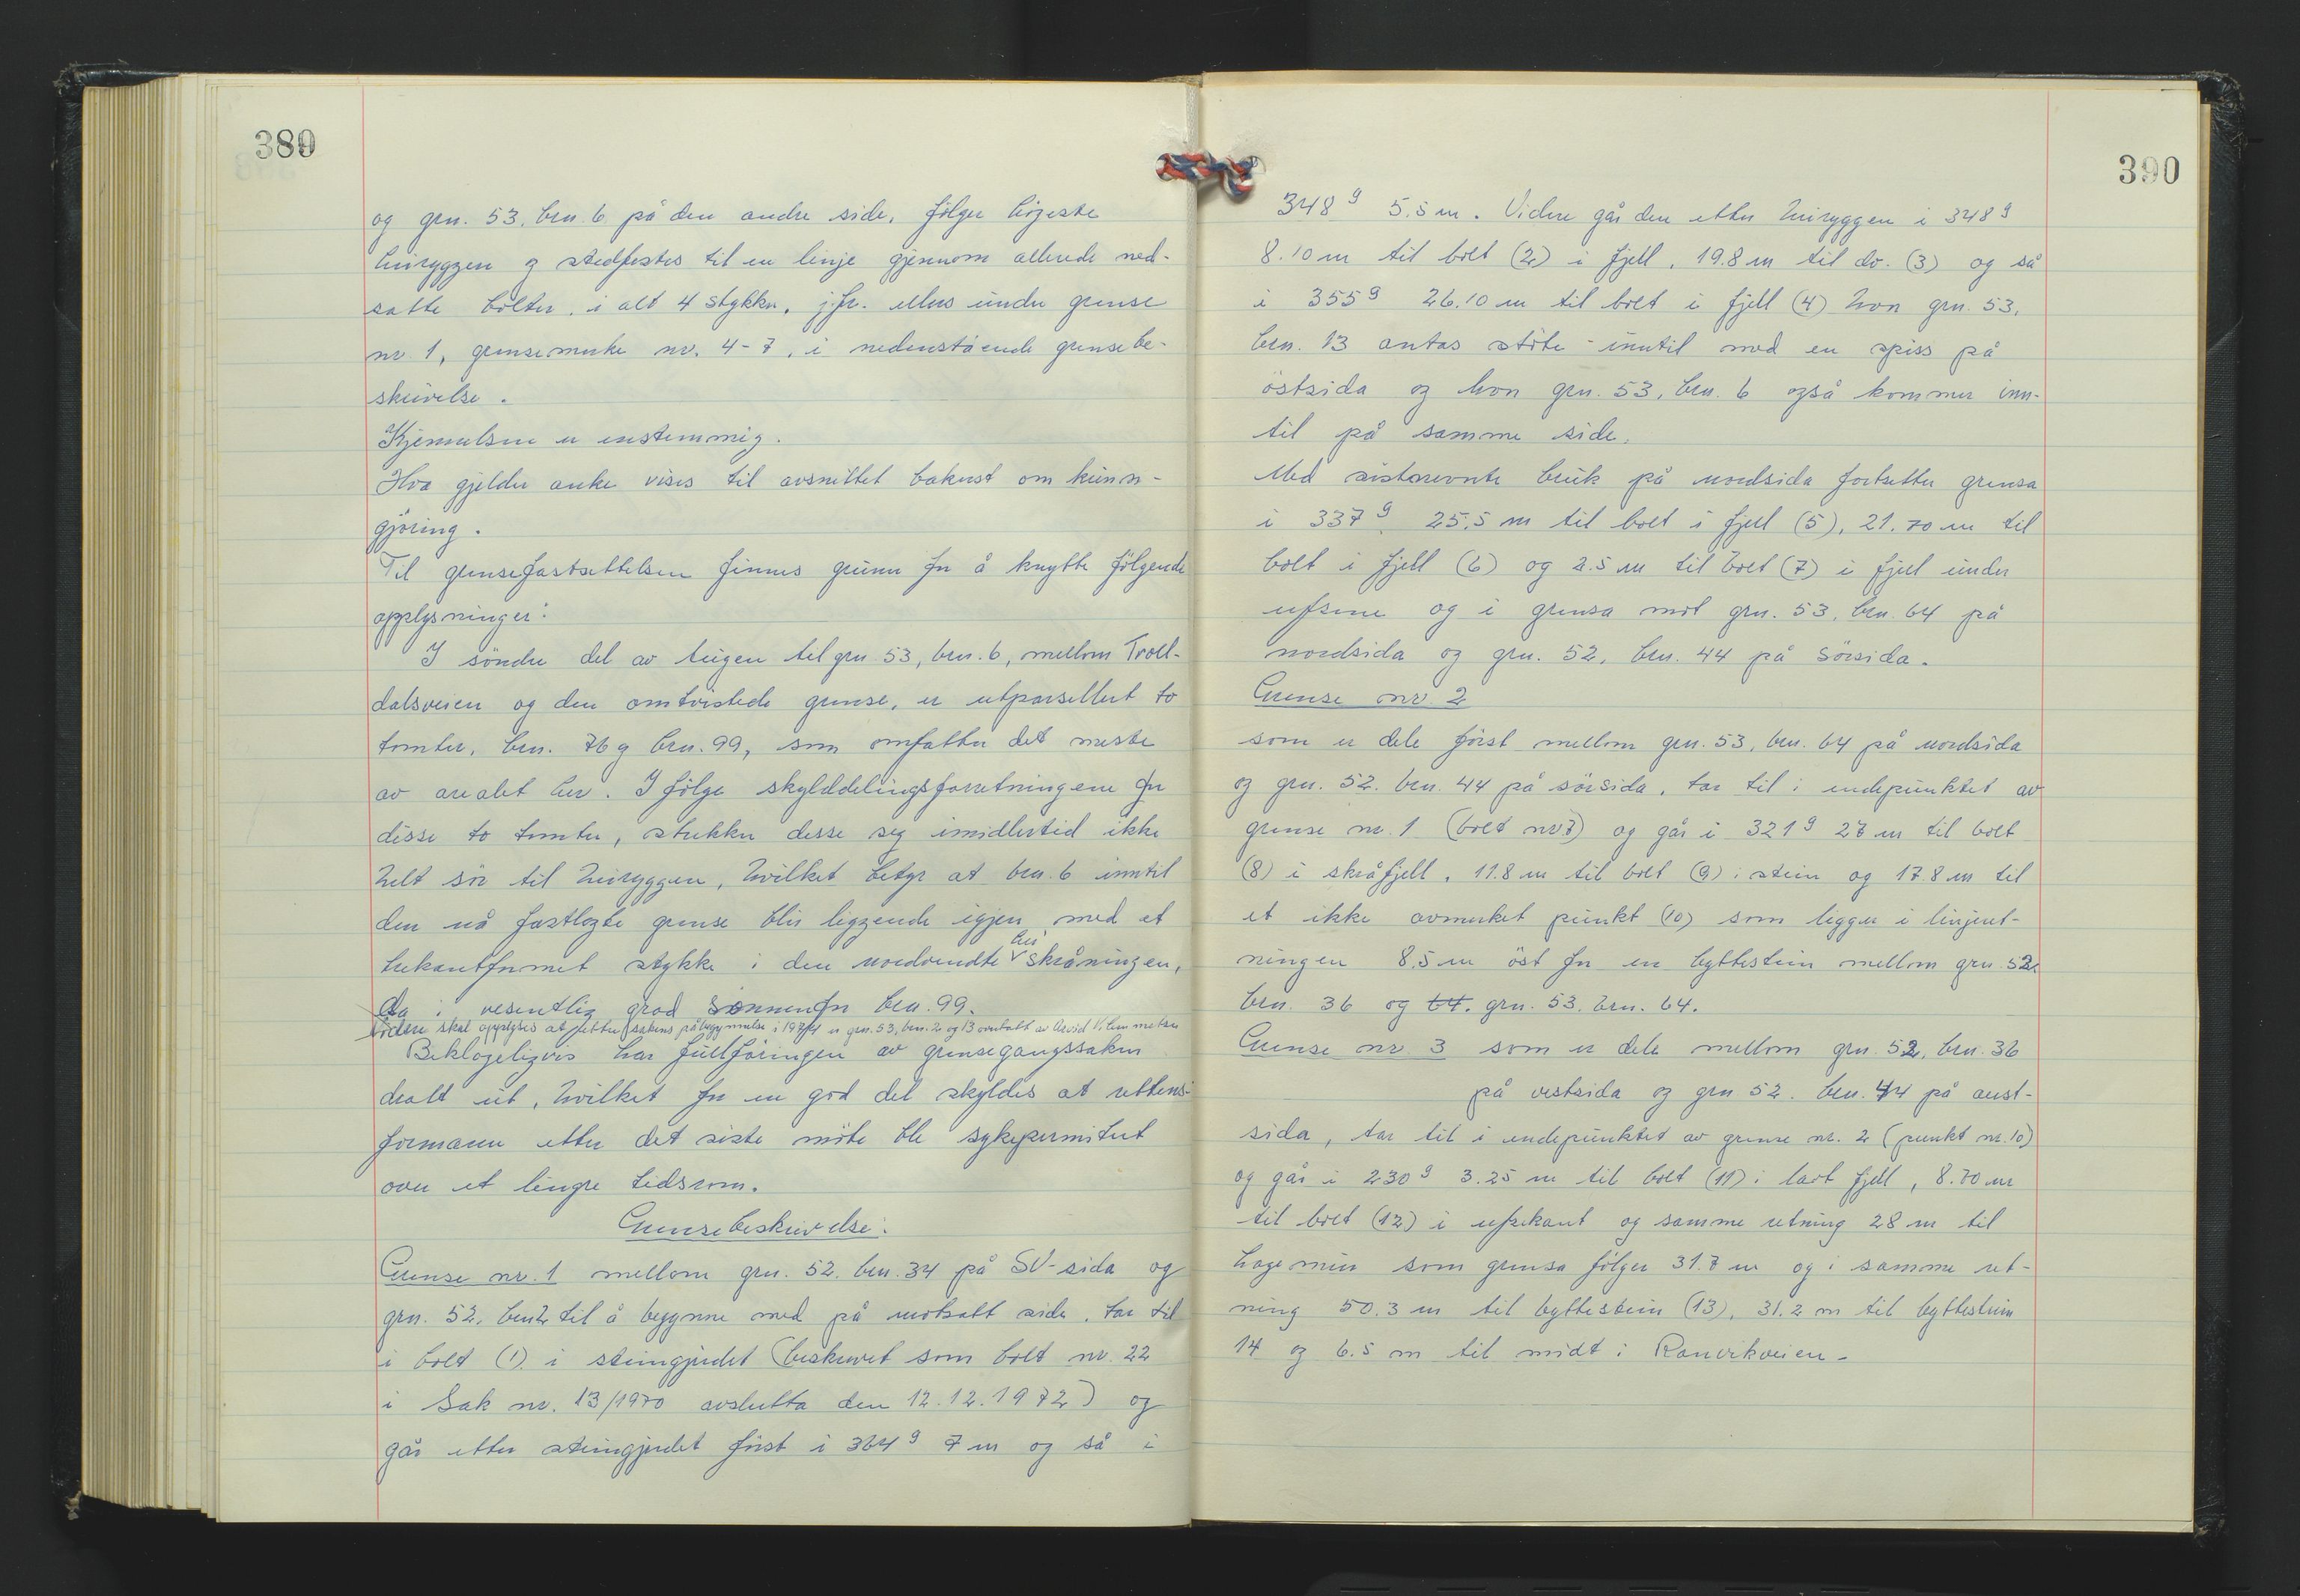 389
og grn. 53, brn. 6 på den andre side, følger høgeste
heiryggen og stedfestes til en linje gjennom allerede ned-
satte bolter, i alt 4 stykker, jfr. ellers under grense
nr. 1, grensemerke nr. 4-7, i nedenstående grensebe-
skrivelse.
Kjennelsen er enstemmig.
Hva gjelder anke vises til avsnittet bakerst om kunn-
gjøring.
Til grensefastsettelsen finnes grunn for å knytte følgende
opplysninger:
I søndre del av teigen til grn. 53, brn. 6, mellom Troll-
dalsveien og den omtvistede grense, er utparsellert to
tomter, brn. 76 og brn. 99, som omfatter det meste
av arealet her. I følge skylddelingsforretningene for
disse to tomter, strekker desse seg imidlertid ikke
helt sør til heiryggen, hvilket betyr at brn. 6 inntil
den nå fastlagte grense blir liggende igjen med et
trekantformet stykke i den nordvendte hei skråningen,
da i vesentlig grad sønnenfor brn. 99.
Videre skal opplyses at etter sakens påbegynnelse i 1974 er grn. 53, brn. 2 og 13 overtatt av Arvid V.
Beklageligvis har fullføringen av grensegangssaken
dratt ut, hvilket for en god del skyldes at rettens
formann etter det siste møte ble sykepermitert
over et lengre tidsrom.
Grensebeskrivelse:
Grense nr. 1 mellom grn. 52, brn. 34 på SV-sida og
grn. 52, brn 2 til å begynne med på motsatt side, tar til
i bolt (1) i steingjerdet (beskrevet som bolt nr. 22
i Sak nr. 13/1970 avslutta den 12.12.1972) og
går etter steingjerdet først i 364 g 7 m og så i
390
348 g 5.5 m. Videre går den etter heiryggen i 348 g
8.10 m til bolt (2) i fjell, 19.8 m til do. (3) og så
i 355 g 26.10 m til bolt i fjell (4) hvor grn. 53,
brn. 13 antas støte inntil med en spiss på
østsida og hvor grn. 53, brn. 6 også kommer inn-
til på samme side.
Med sistnevnte bruk på nordsida fortsetter grensa
i 337 g 25.5 m til bolt i fjell (5), 21.70 m til
bolt i fjell (6) og 2.5 m til bolt (7) i fjell under
ufsene og i grensa mot grn. 53, brn. 64 på
nordsida og grn. 52, brn. 44 på sørsida.
Grense nr. 2
som er dele først mellom grn. 53, brn. 64 på nordsida
og grn. 52. brn. 44 på sørsida, tar til i endepunktet av
grense nr. 1 (bolt nr 7) og går i 321 g 27 m til bolt
(8) i skråfjell, 11.8 m til bolt (9) i stein og 17.8 m til
et ikke avmerket punkt (10) som ligger i linjeret-
ningen 8,5 m øst for en byttestein mellom grn. 52
brn. 36 og 64. grn. 53. brn. 64.
Grense nr. 3 som er dele mellom grn. 52, brn. 36
på vestsida og grn 52. brn. 44 på aust-
sida, tar til i endepunktet av grense nr. 2 (punkt nr. 10)
og går i 230 g 3.25 m til bolt (11) i lavt fjell, 8.70 m
til bolt (12) i ufsekant og samme retning 28 m til
hagemur som grensa følger 31.7 m og i samme ret-
ning 50.3 m til byttestein (13), 31.2 m til byttestein
14 og 6.5 m til midt i Ranvikveien.